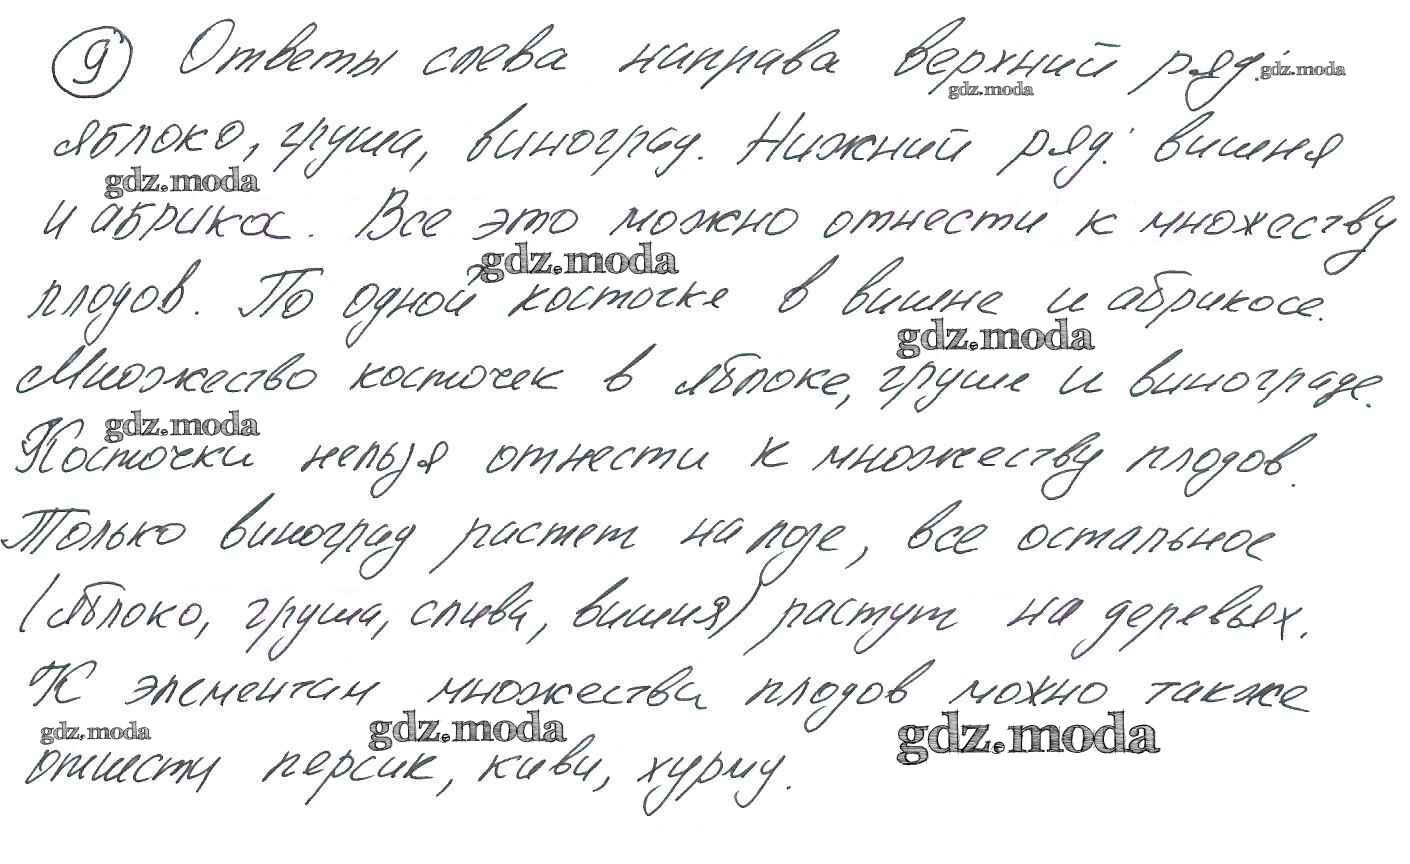 9 Ответы слева направа верхний ряд: gdz.moda
gdz.moda
яблоко, груша, виноград. Нижний ряд: вишня
gdz.moda
и абрикос. Все это можно отнести к множеству
gdz.moda
плодов. По одной косточке в вишне и абрикосе.
gdz.moda
Множество косточек в яблоке, груше и винограде.
gdz.moda
Косточки нельзя отнести к множеству плодов.
Только виноград растет на лозе, все остальное
(яблоко, груша, слива, вишня) растут на деревьях.
К элементам множества плодов можно также
gdz.moda gdz.moda gdz.moda
отнести персик, киви, хурму.